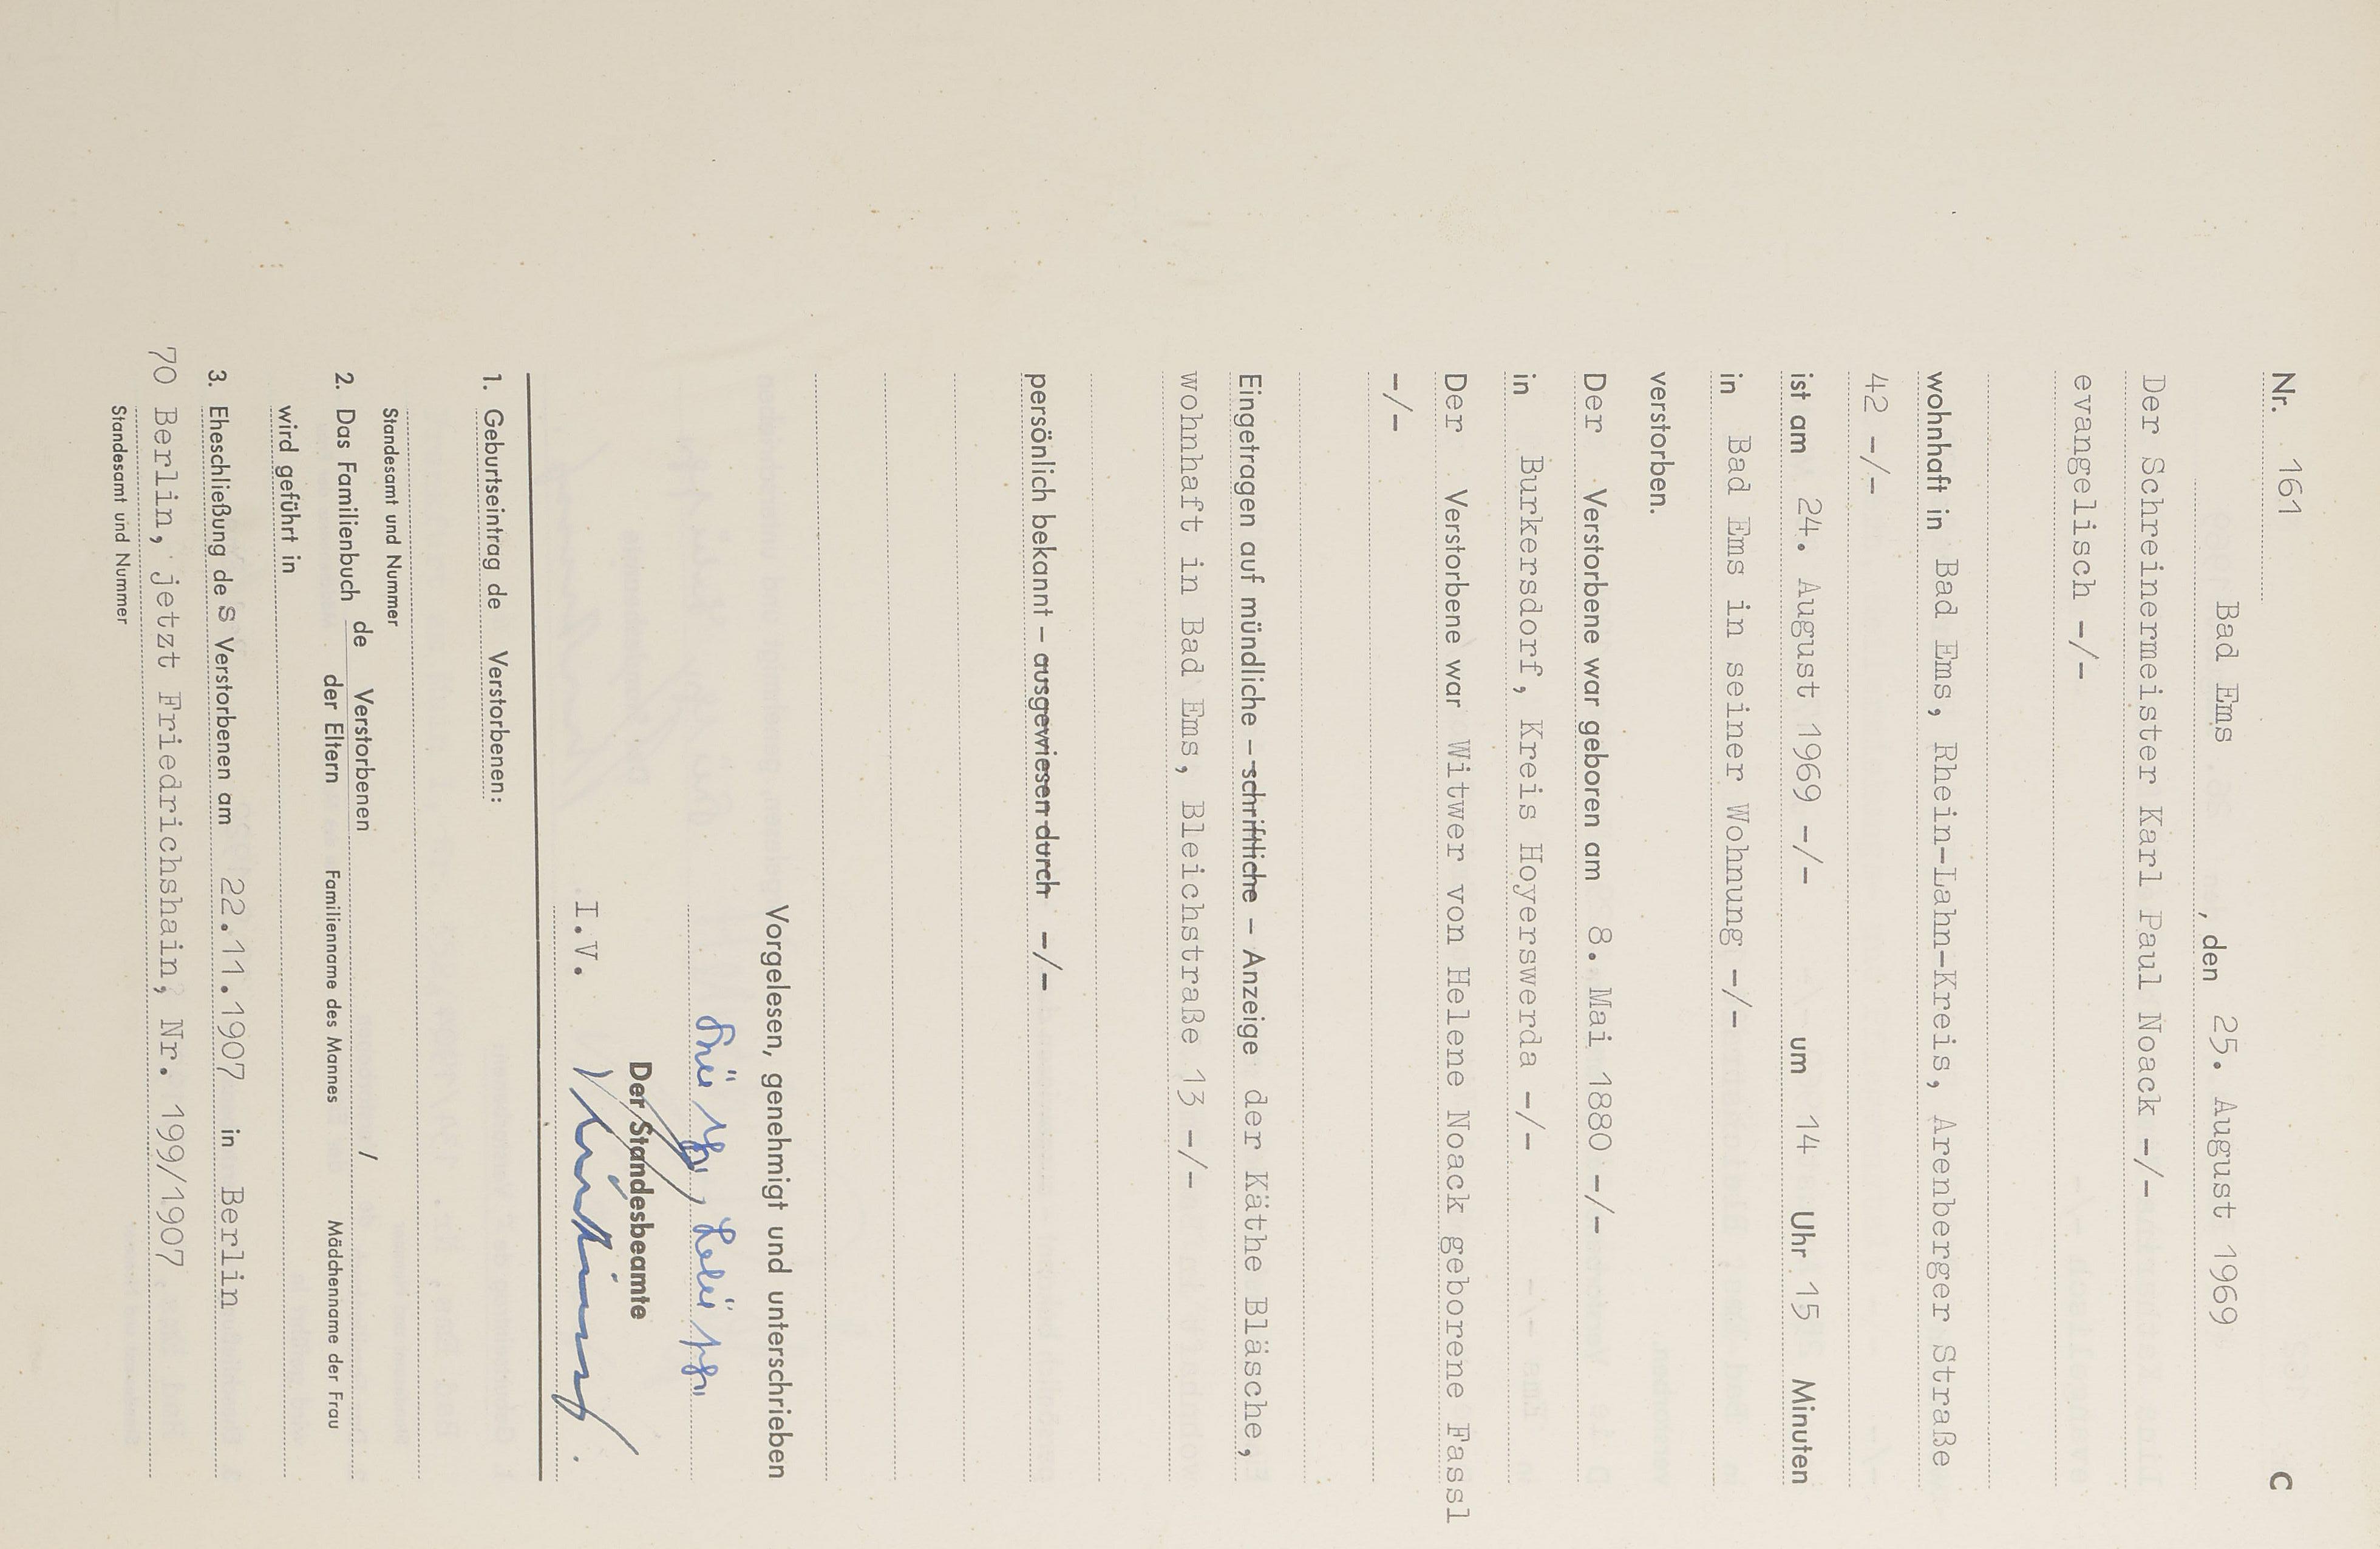 Nr. 161 C
Bad Ems , den 25. August 1969
Der Schreinermeister Karl Paul Noack -/-
evangelisch -/-
wohnhaft in Bad Ems, Rhein-Lahn-Kreis, Arenberger Straße
42 -/-
ist am 24. August 1969 -/- um 14 Uhr 15 Minuten
in Bad Ems in seiner Wohnung -/-
verstorben.
Der Verstorbene war geboren am 8. Mai 1880 -/-
in Burkersdorf, Kreis Hoyerswerda -/-
Der Verstorbene war Witwer von Helene Noack geborene Fassl
-/-
Eingetragen auf mündliche – schriftliche – Anzeige der Käthe Bläsche,
wohnhaft in Bad Ems, Bleichstraße 13 -/-
persönlich bekannt – ausgewiesen durch -/-
Vorgelesen, genehmigt und unterschrieben
Der Standesbeamte
I.V.
1. Geburtseintrag de Verstorbenen:
Standesamt und Nummer
2. Das Familienbuch de Verstorbenen /
der Eltern Familienname des Mannes Mädchenname der Frau
wird geführt in
3. Eheschließung des Verstorbenen am 22.11.1907 in Berlin
70 Berlin, jetzt Friedrichshain, Nr. 199/1907
Standesamt und Nummer